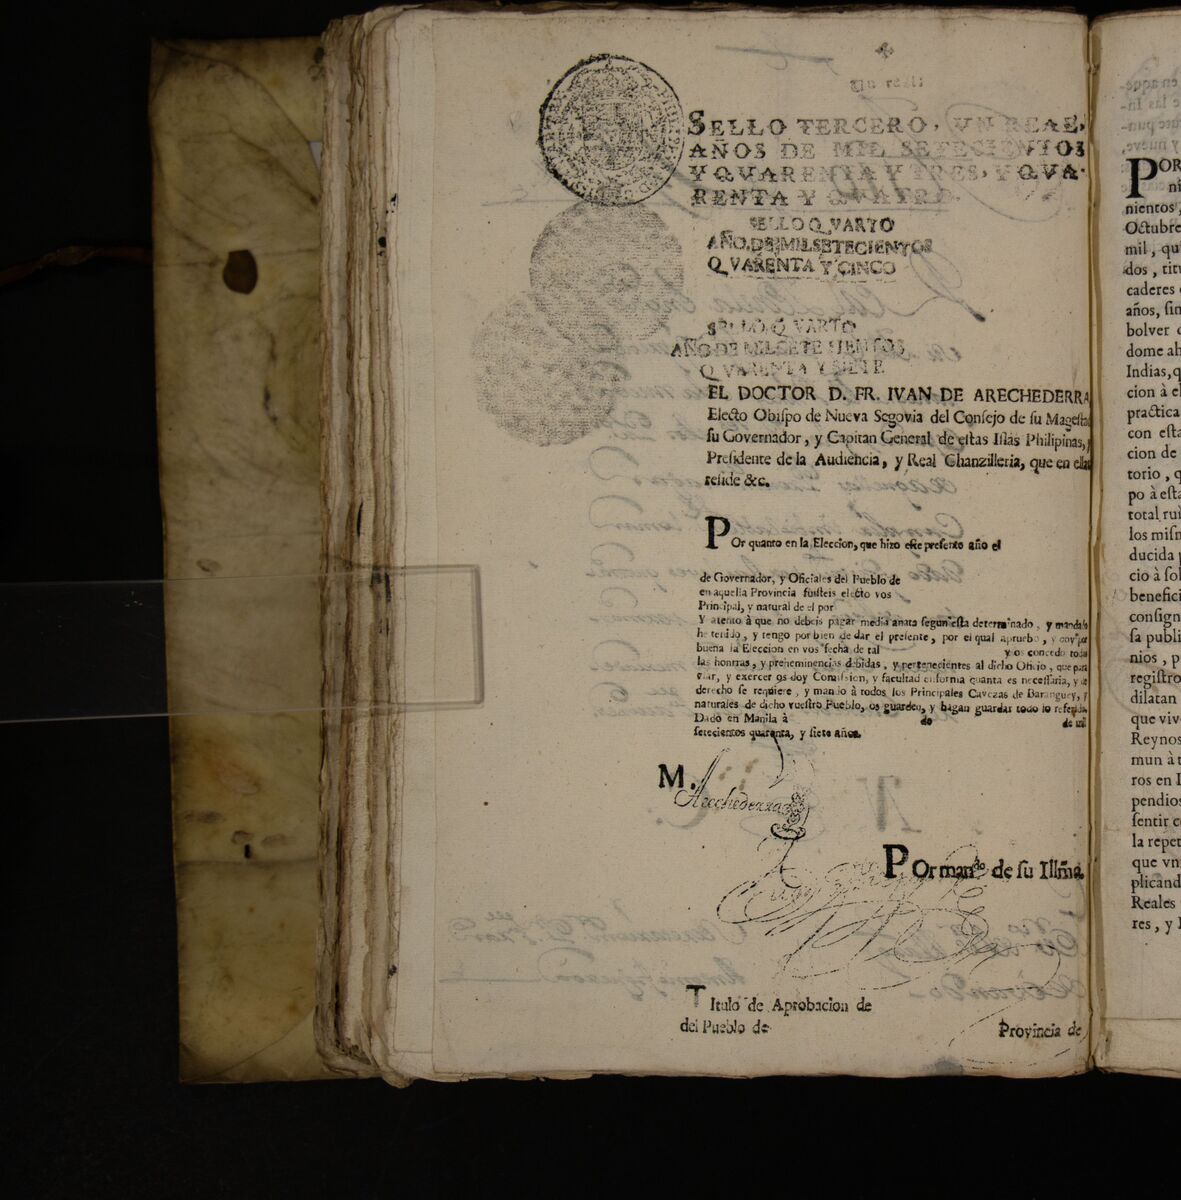 Un real.
SELLO TERCERO, VN REAL,
AÑOS DE MIL SETECIENTOS
Y QVARENTA Y TRES, Y QVA-
RENTA Y QVATRO.
SELLO QVARTO
AÑO.DE MIL SETECIENTOS
QVARENTA Y CINCO
SELLO QVARTO
AÑO DE MIL SETE SIENTOS
QVARENTA Y SIETE
EL DOCTOR D. FR. IVAN DE ARECHEDERRA
Electo Obiſpo de Nueva Segovia del Conſejo de ſu Mageſta
ſu Governador, y Capitan General de eſtas Iſlas Philipinas, y
Preſidente de la Audiencia, y Real Chanzilleria, que en ellas
reſide &c.
POr quanto en la Eleccion, que hizo eſte preſente año el
de Governador, y Oficiales del Pueblo de
en aquella Provincia fuiſteis electo vos
Principal, y natural de el por
Y atento à que no debeis pagar media anata ſegun eſta determinado, y mandado
he tenido, y tengo por bien de dar el preſente, por el qual apruebo, y doy por
buena la Eleccion en vos fecha de tal y os concedo todas
las honrras, y preheminencias debidas, y pertenecientes al dicho Oficio, que para
uſar, y exercer os doy Comiſſion, y facultad en forma quanta es neceſſaria, y de
derecho ſe requiere, y mando à todos los Principales Cavezas de Baranguey, y
naturales de dicho vueſtro Pueblo, os guarden, y hagan guardar todo lo referido.
Dado en Manila à de de mil
ſetecientos quarenta, y ſiete años.
M.
Arechederra
POr man.do de ſu Illma.
TItulo de Aprobacion de
del Pueblo de Provincia de
POR
nientos,
Octubre
mil, qu
dos, titu
caderes
años, ſin
bolver
dome ah
Indias, q
cion à el
practica
con eſta
cion de
torio, q
po à eſta
total rui
los miſm
ducida
cio à ſol
benefici
conſign
ſa publi
nios, p
regiſtro
dilatan
que viv
Reynos
mun à t
ros en I
pendios
ſentir c
la repet
que vn
plicand
Reales
res, y